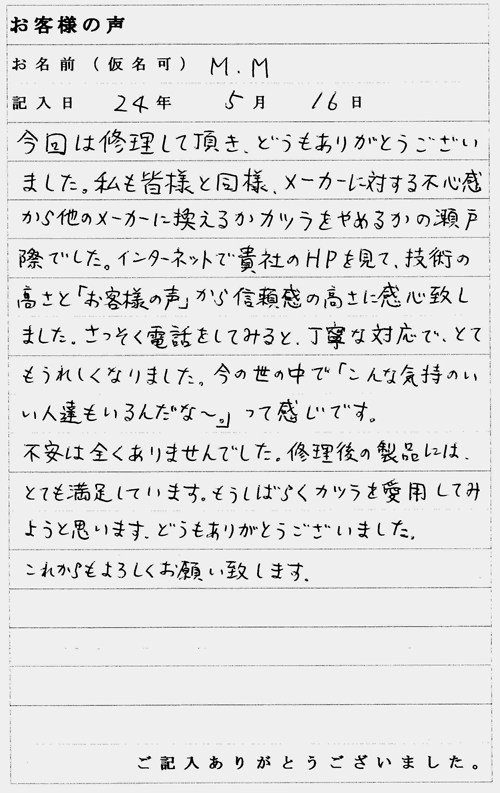 お客様の声
お名前（仮名可） M.M
記入日 24年 5月 16日
今回は修理して頂き、どうもありがとうござい
ました。私も皆様と同様、メーカーに対する不心感
から他のメーカーに換えるかカツラをやめるかの瀬戸
際でした。インターネットで貴社のHPを見て、技術の
高さと「お客様の声」から信頼感の高さに感心致し
ました。さっそく電話をしてみると、丁寧な対応で、とて
もうれしくなりました。今の世の中で「こんな気持のい
い人達もいるんだな～。」って感じです。
不安は全くありませんでした。修理後の製品には、
とても満足しています。もうしばらくカツラを愛用してみ
ようと思います。どうもありがとうございました。
これからもよろしくお願い致します。
ご記入ありがとうございました。